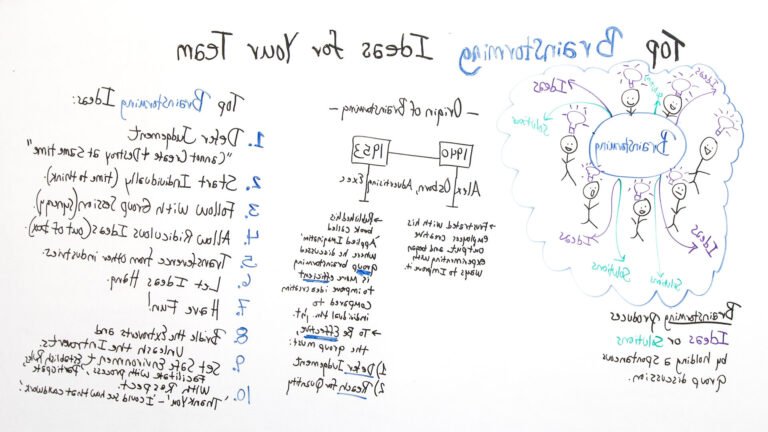 Top Brainstorming Ideas for Your Team
Ideas
Ideas
Solutions
Brainstorming
Ideas
Ideas
Solutions
Solutions
Brainstorming produces
Ideas or Solutions
by holding a spontaneous
group discussion.
– Origin of Brainstorming –
1940
1953
Alex Osborn, Advertising Exec
→ Frustrated with his
employees creative
output and began
experimenting with
ways to improve it.
→ Published his
book called
"Applied Imagination"
where he discusses
group brainstorming
is more efficient
to improve idea creation
compared to
individual thinking.
→ To Be Effective,
the group must:
1) Defer Judgement
2) Reach for Quantity
Top Brainstorming Ideas:
1. Defer Judgement
"Cannot Create + Destroy at Same time"
2. Start Individually (time to think).
3. Follow With Group Session (synergy)
4. Allow Ridiculous Ideas (out of box).
5. Transference from other industries.
6. Let Ideas Hang.
7. Have Fun!
8. Bridle the Extroverts and
Unleash the Introverts.
9. Set Safe Environment. Establish Rules,
Facilitate with process, Participate,
With Respect.
10. "Thank You" – "I could see how that could work"